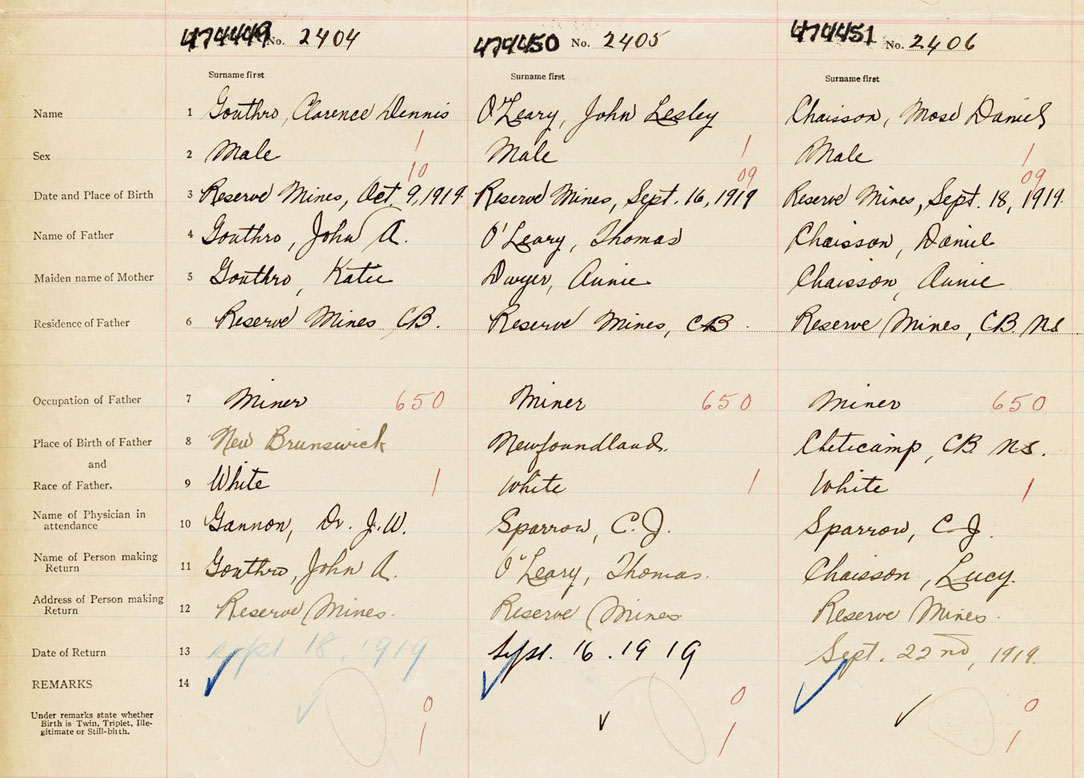 474449 No. 2404 474450 No. 2405 474451 No. 2406
Surname first Surname first Surname first
Name 1 Gouthro, Clarence Dennis O'Leary, John Lesley Chaisson, Mose Daniel
Sex 2 Male 1 Male 1 Male 1
10 09 09
Date and Place of Birth 3 Reserve Mines, Oct. 9, 1919 Reserve Mines, Sept. 16, 1919 Reserve Mines, Sept. 18, 1919.
Name of Father 4 Gouthro, John A. O'Leary, Thomas Chaisson, Daniel
Maiden name of Mother 5 Gouthro, Katie Dwyer, Annie Chaisson, Annie
Residence of Father 6 Reserve Mines CB. Reserve Mines, CB. Reserve Mines, CB. NS
Occupation of Father 7 Miner 650 Miner 650 Miner 650
Place of Birth of Father 8 New Brunswick Newfoundland. Cheticamp, CB. NS.
and
Race of Father. 9 White 1 White 1 White 1
Name of Physician in
attendance 10 Gannon, Dr. J. W. Sparrow, C. J. Sparrow, C. J.
Name of Person making
Return 11 Gouthro, John A. O'Leary, Thomas. Chaisson, Lucy.
Address of Person making
Return 12 Reserve Mines. Reserve Mines Reserve Mines.
Date of Return 13 Sept 18. 1919 Sept. 16. 1919 Sept. 22nd, 1919.
REMARKS 14
Under remarks state whether 0 0 0
Birth is Twin, Triplet, Ille-
gitimate or Still-birth. 1 1 1